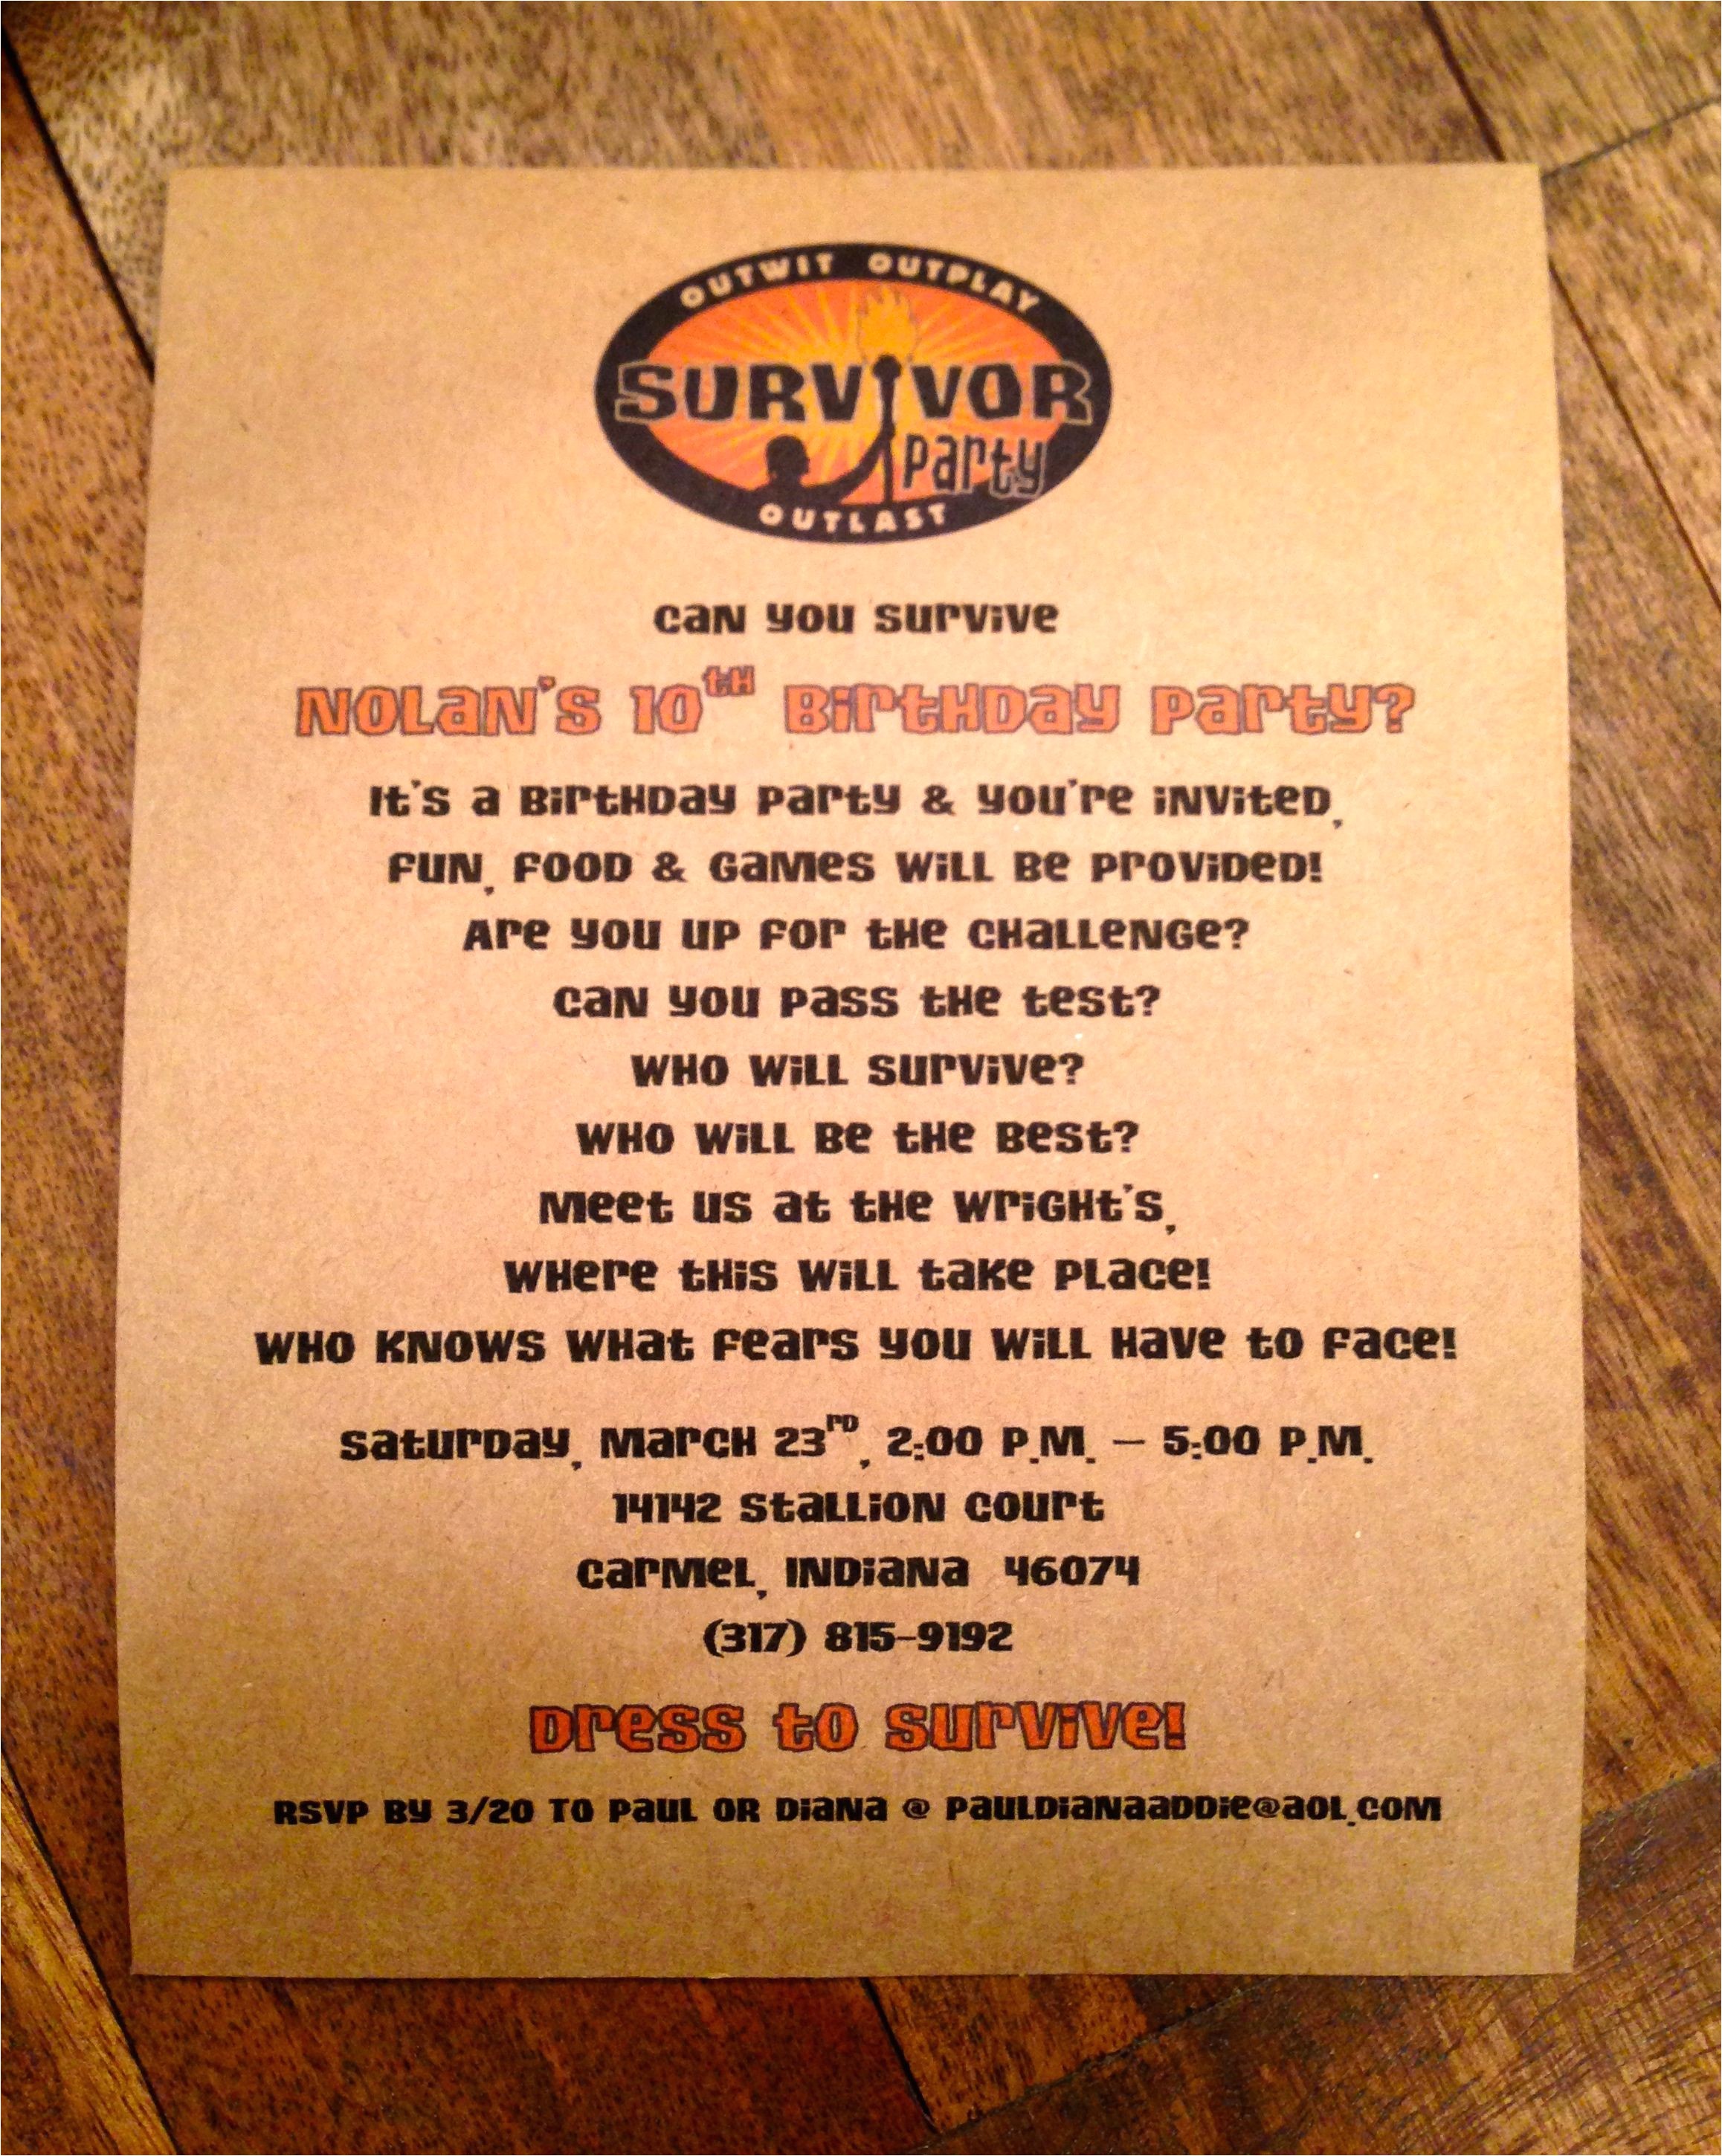 OUTWIT OUTPLAY
SURVIVOR
Party
OUTLAST
Can you survive
Nolan's 10th Birthday Party?
It's a Birthday Party & you're invited,
Fun, Food & Games will be provided!
Are you up for the challenge?
Can you pass the test?
Who will survive?
Who will be the best?
Meet us at the Wright's,
Where this will take place!
Who knows what fears you will have to face!
Saturday, March 23rd, 2:00 P.M. – 5:00 P.M.
14142 Stallion Court
Carmel, Indiana 46074
(317) 815-9192
Dress to survive!
RSVP BY 3/20 TO Paul OR Diana @ pauldianaaddie@aol.com